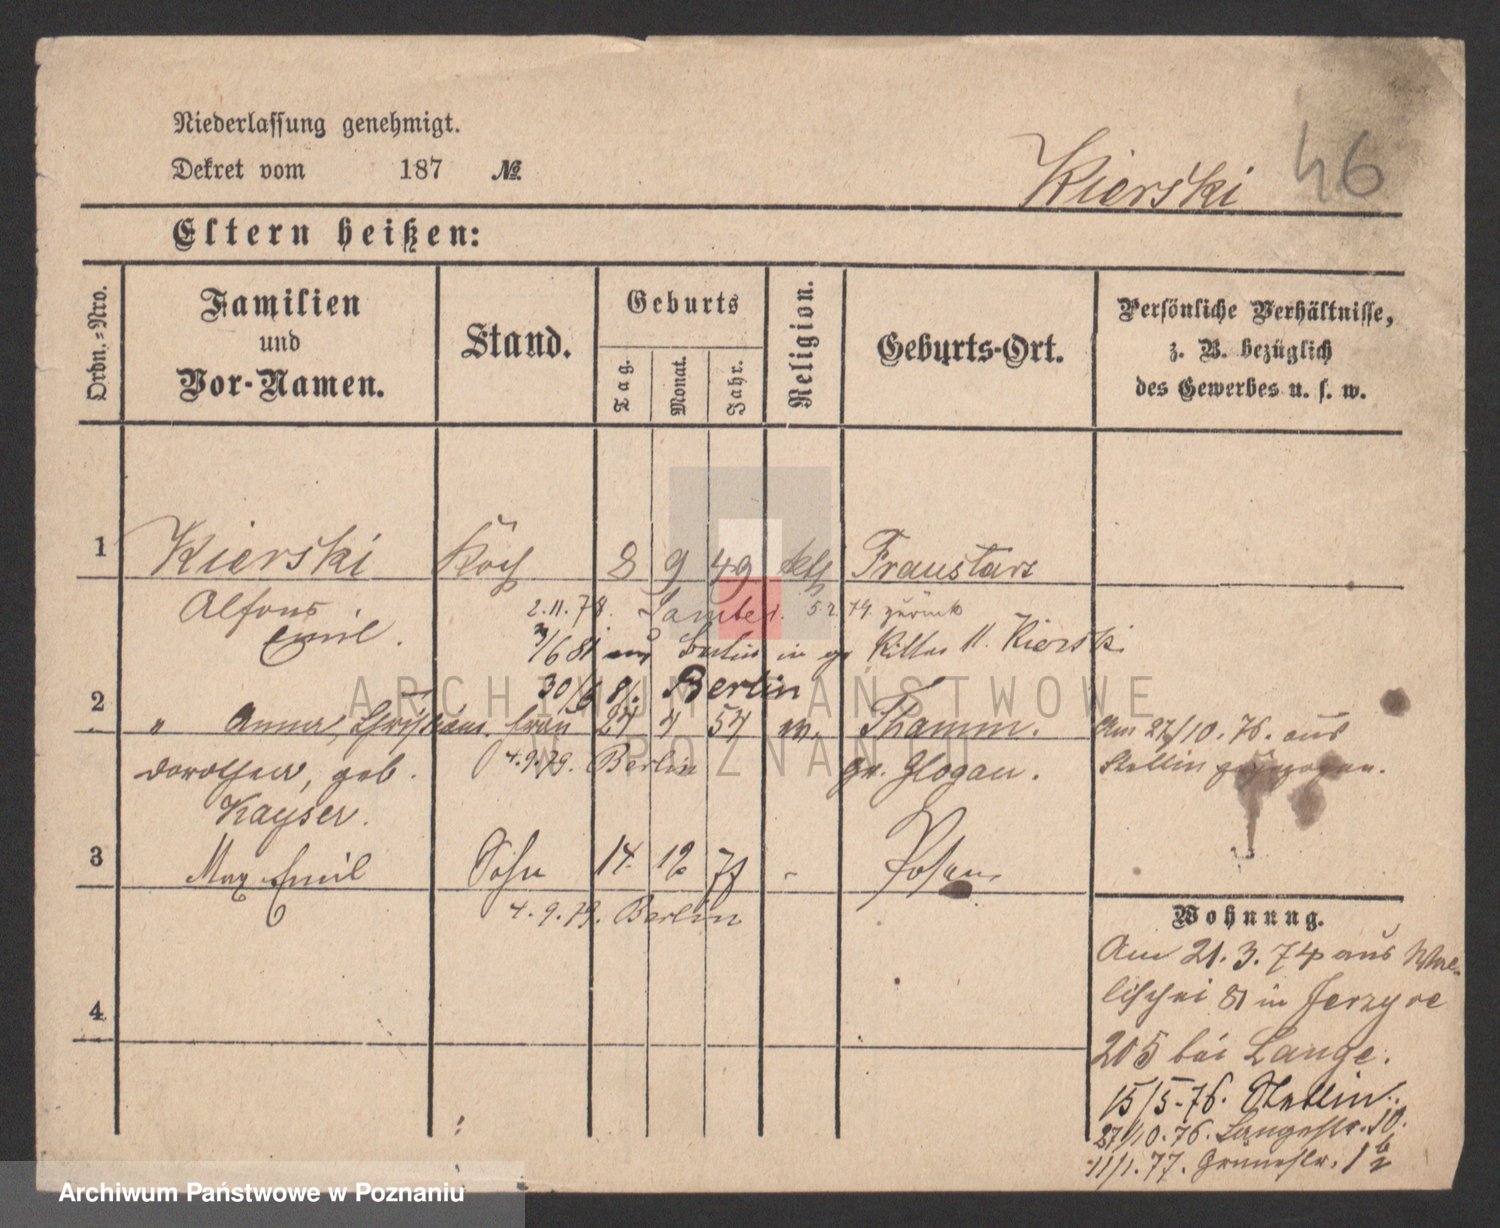 Niederlassung genehmigt.
Dekret vom 187 No.
Kierski 46
Eltern heißen:
Ordn.-Nro.
Familien und Vor-Namen.
Stand.
Geburts
Tag.
Monat.
Jahr.
Religion.
Geburts-Ort.
Persönliche Verhältnisse,
z. B. bezüglich
des Gewerbes u. s. w.
1 Kierski Koch 8 9 49 kth Fraustadt
Alfons 2.11.78. 5 2. 79. zurück
Emil. 3/6 81 aus Berlin in Kierski
30/6 81. Berlin
2 " Anna, Christiane Frau 24 4 54 Thamm. Am 27/10. 76. aus
Dorothea, geb. 4.9.79. Berlin Gr. Glogau. Stettin
Kayser.
3 Max Emil Sohn 14. 12 77 - Posen
4.9.79. Berlin
Wohnung.
Am 21.3.74 aus
81 in Jerzyce
205 bei Lange.
4
15/5-76. Stettin.
27/10.76. Langestr. 10.
11/1.77. Grünestr. 1
ARCHIWUM PAŃSTWOWE
W POZNANIU
Archiwum Państwowe w Poznaniu